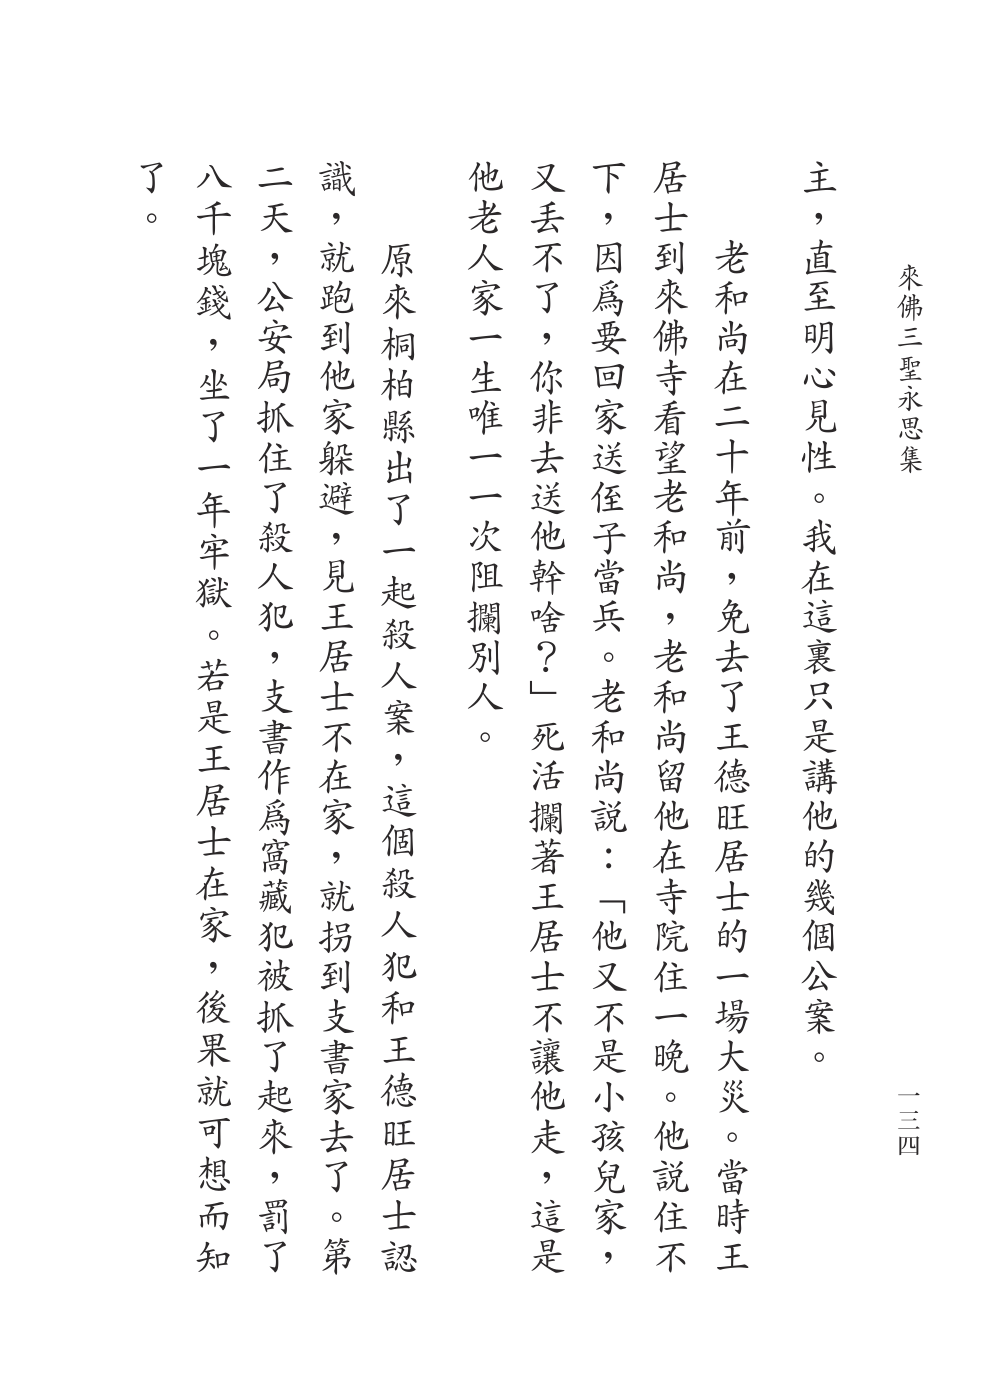 來佛三聖永思集
一三四
主，直至明心見性。我在這裏只是講他的幾個公案。
老和尚在二十年前，免去了王德旺居士的一場大災。當時王
居士到來佛寺看望老和尚，老和尚留他在寺院住一晚。他説住不
下，因爲要回家送侄子當兵。老和尚説：「他又不是小孩兒家，
又丢不了，你非去送他幹啥？」死活攔著王居士不讓他走，這是
他老人家一生唯一一次阻攔別人。
原來桐柏縣出了一起殺人案，這個殺人犯和王德旺居士認
識，就跑到他家躲避，見王居士不在家，就拐到支書家去了。第
二天，公安局抓住了殺人犯，支書作爲窩藏犯被抓了起來，罰了
八千塊錢，坐了一年牢獄。若是王居士在家，後果就可想而知
了。